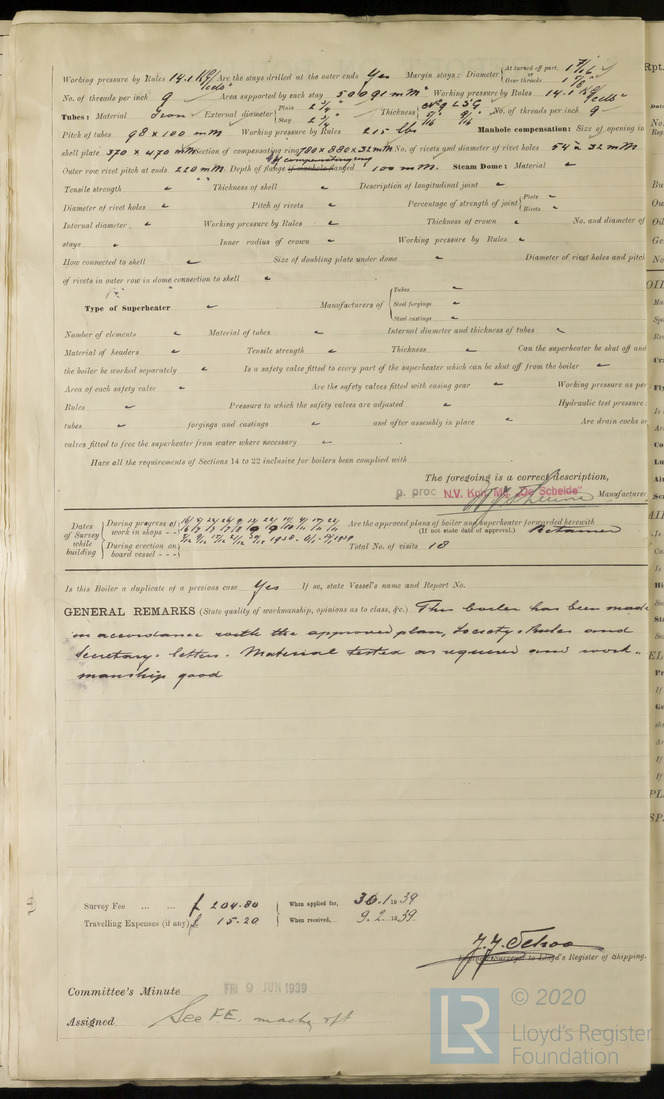 Working pressure by Rules 14.1 Kg/cells² Are the stays drilled at the outer ends Yes Margin stays: Diameter { At turned off part, 1 7/16" or Over threads 1 7/8"
No. of threads per inch 9 Area supported by each stay 50691 mm² Working pressure by Rules 14.1
Tubes: Material Iron External diameter { Plain 2 3/4" Stay 2 3/4" Thickness { No 9 LSG 5/16 9/16 No. of threads per inch 9
Pitch of tubes 98 x 100 mm Working pressure by Rules 215 lbs Manhole compensation: Size of opening in
shell plate 370 x 470 mm Section of compensating ring 780 x 880 x 32 mm No. of rivets and diameter of rivet holes 54 a 32 mm
Outer row rivet pitch at ends 220 mm. Depth of flange if manhole flanged of compensating ring 100 mm. Steam Dome: Material
Tensile strength Thickness of shell Description of longitudinal joint
Diameter of rivet holes Pitch of rivets Percentage of strength of joint { Plate Rivets
Internal diameter Working pressure by Rules Thickness of crown No. and diameter of
stays Inner radius of crown Working pressure by Rules
How connected to shell Size of doubling plate under dome Diameter of rivet holes and pitch
of rivets in outer row in dome connection to shell
Type of Superheater Manufacturers of { Tubes Steel forgings Steel castings
Number of elements Material of tubes Internal diameter and thickness of tubes
Material of headers Tensile strength Thickness Can the superheater be shut off and
the boiler be worked separately Is a safety valve fitted to every part of the superheater which can be shut off from the boiler
Area of each safety valve Are the safety valves fitted with easing gear Working pressure as per
Rules Pressure to which the safety valves are adjusted Hydraulic test pressure:
tubes forgings and castings and after assembly in place Are drain cocks or
valves fitted to free the superheater from water where necessary
Have all the requirements of Sections 14 to 22 inclusive for boilers been complied with
The foregoing is a correct description,
p. proc N.V. Kon. Mij. "De Schelde" Manufacturer
Dates of Survey while building { During progress of work in shops - -
During erection on board vessel - - -
Are the approved plans of boiler and superheater forwarded herewith (If not state date of approval.) Retained
Total No. of visits 18
Is this Boiler a duplicate of a previous case Yes If so, state Vessel's name and Report No.
GENERAL REMARKS (State quality of workmanship, opinions as to class, &c.) This boiler has been made
in accordance with the approved plan, Society's Rules and
Secretary's letters. Material tested as required and work-
manship good
Survey Fee ... ... £ 204.80 When applied for, 30.1.1939
Travelling Expenses (if any) £ 15.20 When received, 9.2.1939.
Engineer Surveyor to Lloyd's Register of Shipping.
Committee's Minute FRI 9 JUN 1939
Assigned See F.E. machy rpt
LR © 2020
Lloyd's Register
Foundation